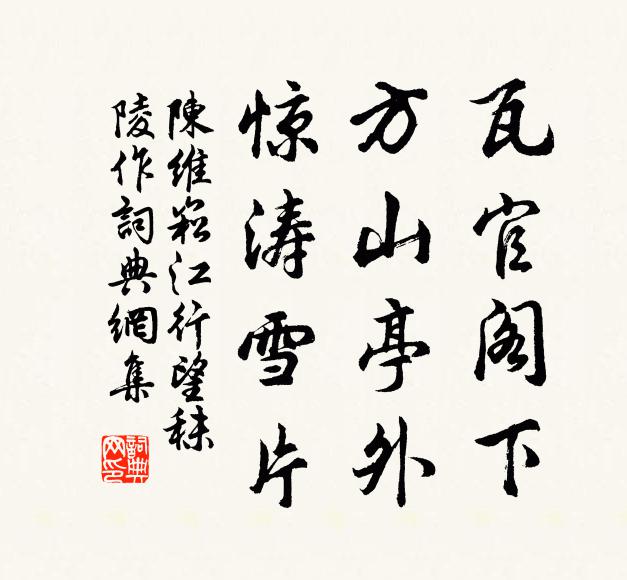 瓦官阁下
方山亭外
惊涛雪片
陳維崧江行望秣
陵作詞典網集
詞典网印